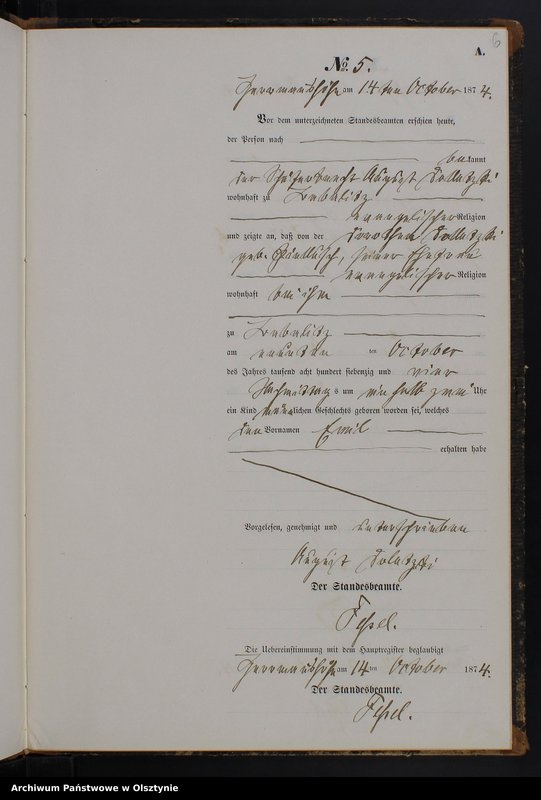 6
A.
No. 5.
Herrmannshöhe am 14 ten October 1874.
Vor dem unterzeichneten Standesbeamten erschien heute,
der Person nach
bekannt
der Schäferknecht August
wohnhaft zu
evangelischer Religion
und zeigte an, daß von der Dorothea
geb. seiner Ehefrau
evangelischer Religion
wohnhaft bei ihm
zu
am neunten ten October
des Jahres tausend acht hundert siebenzig und vier
Nachmittags um ein halb zwei Uhr
ein Kind männlichen Geschlechts geboren worden sei, welches
den Vornamen Emil
erhalten habe
Vorgelesen, genehmigt und unterschrieben
August
Der Standesbeamte.
Die Uebereinstimmung mit dem Hauptregister beglaubigt
Herrmannshöhe am 14 ten October 1874.
Der Standesbeamte.
Archiwum Państwowe w Olsztynie